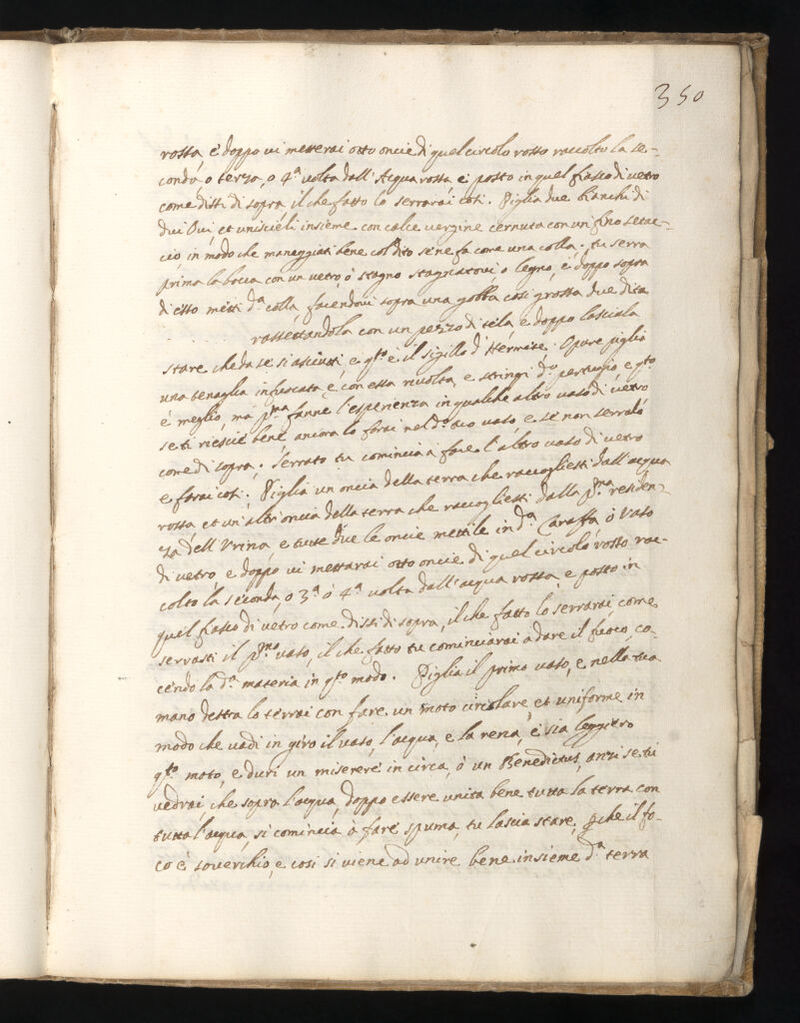 350
rossa, e doppo vi metterai otto oncie di quel circolo rosso raccolto la se-
conda, o terza, o 4.ª volta dall'Acqua rossa e posto in quel fiasco di vetro
come dissi di sopra, il che fatto lo serrarai così. Piglia due bianchi di
dui Ovi, et uniscieli insieme con calce vergine cernuta con un fino setac-
cio, in modo che maneggiati bene col dito se ne fa come una colla. tu serra
prima la bocca con un vetro, ò stagno stagnatovi, o legno, e doppo sopra
di esso metti d.ª colla, facendovi sopra una gobba così grossa due dita
rassettandola con un pezzo di tela, e doppo lasciala
stare che da se si asciutti, e q.to è il sigillo d'Hermete. Opure piglia
una tenaglia infuocata, e con essa rivolta, e stringi d.º pertugio, e q.to
è meglio, ma p.ma fanne l'esperienza in qualche altro vaso di vetro
se ti riescie bene ancora lo farai nel d.º tuo vaso, e se non serralo
come di sopra. Serrato tu comincia à fare l'altro vaso di vetro
e farai così. Piglia un oncia della terra che raccogliesti dall'acqua
rossa, et un'altr'oncia della terra che raccogliesti dalla p.ma residen-
za dell'Urina, e tutte due le oncie mettile in d.ª Caraffa, ò Vaso
di vetro, e doppo vi mettarai otto oncie di quel circolo rosso rac-
colto la seconda, o 3.ª ò 4.ª volta dall'acqua rossa, e posto in
quel fiasco di vetro come dissi di sopra, il che fatto lo serrarai, come
serrasti il p.mo vaso, il che fatto tu cominciarai a dare il fuoco, co-
cendo la d.ª materia in q.to modo. Piglia il primo vaso, e nella tua
mano destra lo terrai con fare un moto circolare, et uniforme in
modo che vadi in giro il vaso, l'acqua, e la rena, e sia leggiero
q.to moto, e duri un miserere in circa, ò un Benedictus, anzi se tu
vedrai, che sopra l'acqua, doppo essere unita bene tutta la terra con
tutta l'acqua, si comincia à fare spuma, tu lascia stare, perche il fo-
co è soverchio, e così si viene ad unire bene insieme d.ª terra